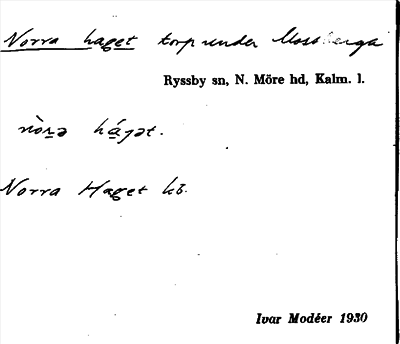 Norra haget torp under Mossberga
Ryssby sn, N. Möre hd, Kalm. l.
nòrə hágət.
Norra Haget kb.
Ivar Modéer 1930